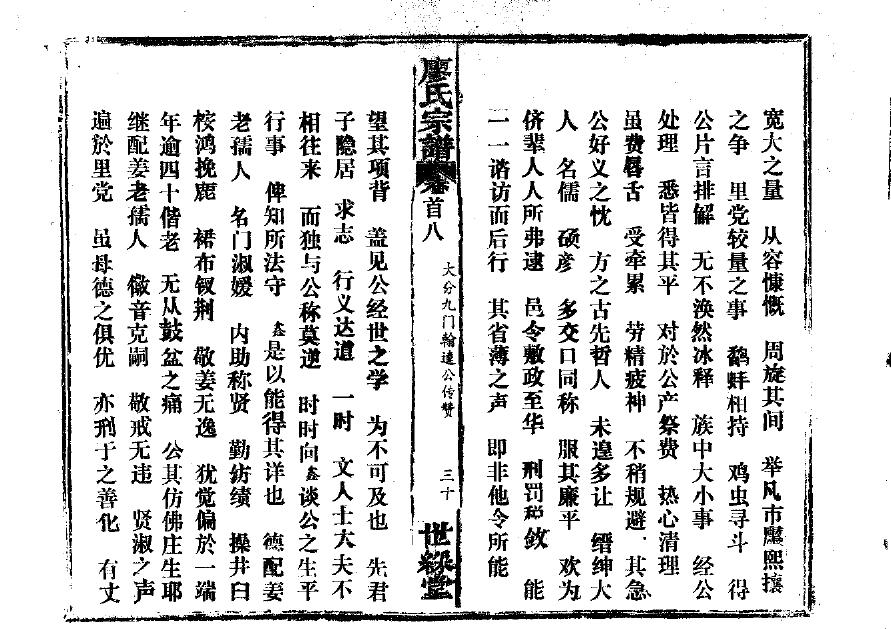 宽大之量　从容慷慨　周旋其间　举凡市廛熙攘
之争　里党较量之事　鹬蚌相持　鸡虫寻斗　得
公片言排解　无不涣然冰释　族中大小事　经公
处理　悉皆得其平　对於公产祭费　热心清理
虽费唇舌　受牵累　劳精疲神　不稍规避　其急
公好义之忱　方之古先哲人　未遑多让　缙绅大
人　名儒　硕彦　多交口同称　服其廉平　欢为
侪辈人人所弗逮　邑令敷政至华　刑罚税敛　能
一一谘访而后行　其省薄之声　即非他令所能
廖氏宗谱
卷首八
大分九门翰逵公传赞
三十
世䌽堂
望其项背　盖见公经世之学　为不可及也　先君
子隐居　求志　行义达道　一时　文人士大夫不
相往来　而独与公称莫逆　时时向鑫谈公之生平
行事　俾知所法守　鑫是以能得其详也　德配姜
老孺人　名门淑媛　内助称贤　勤纺绩　操井臼
桉鸿挽鹿　裙布钗荆　敬姜无逸　犹觉偏於一端
年逾四十偕老　无从鼓盆之痛　公其仿佛庄生耶
继配姜老孺人　徽音克嗣　敬戒无违　贤淑之声
遍於里党　虽母德之俱优　亦刑于之善化　有丈